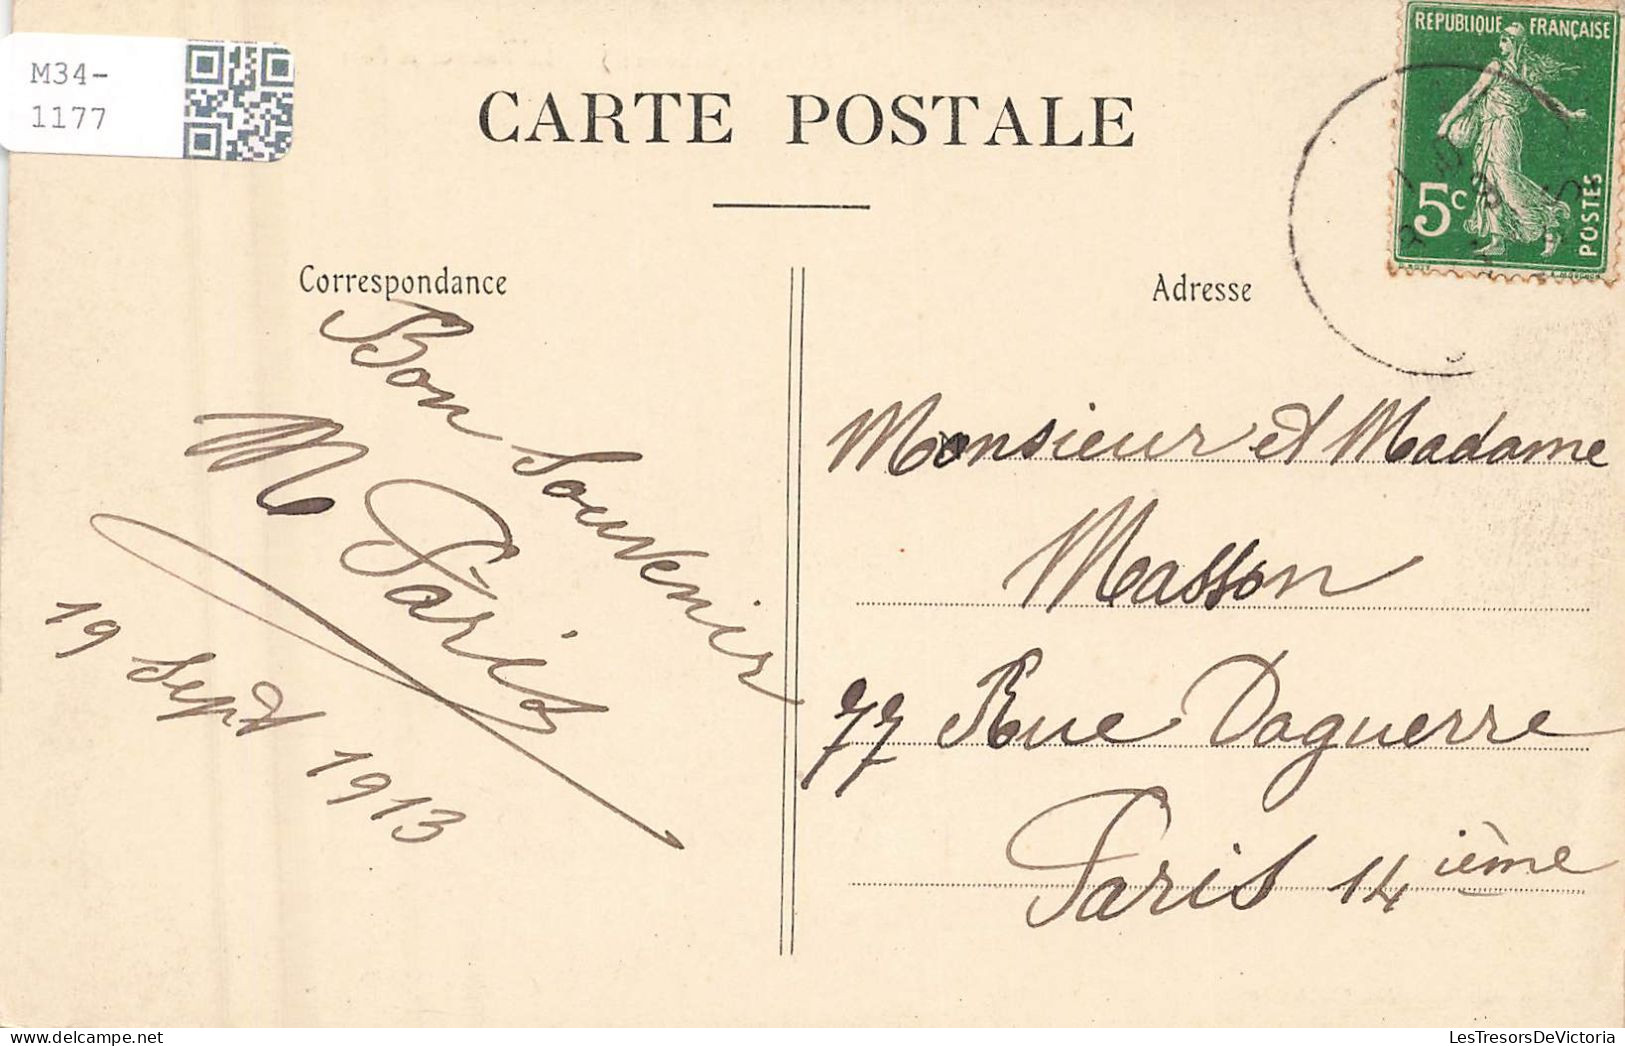 M34-
1177
CARTE POSTALE
REPUBLIQUE FRANÇAISE
5c
POSTES
Correspondance
Adresse
Bon Souvenir
M Pàris
19 Sept 1913
Monsieur et Madame
Masson
77 Rue Daguerre
Paris 14 ième
LesTresorsDeVictoria